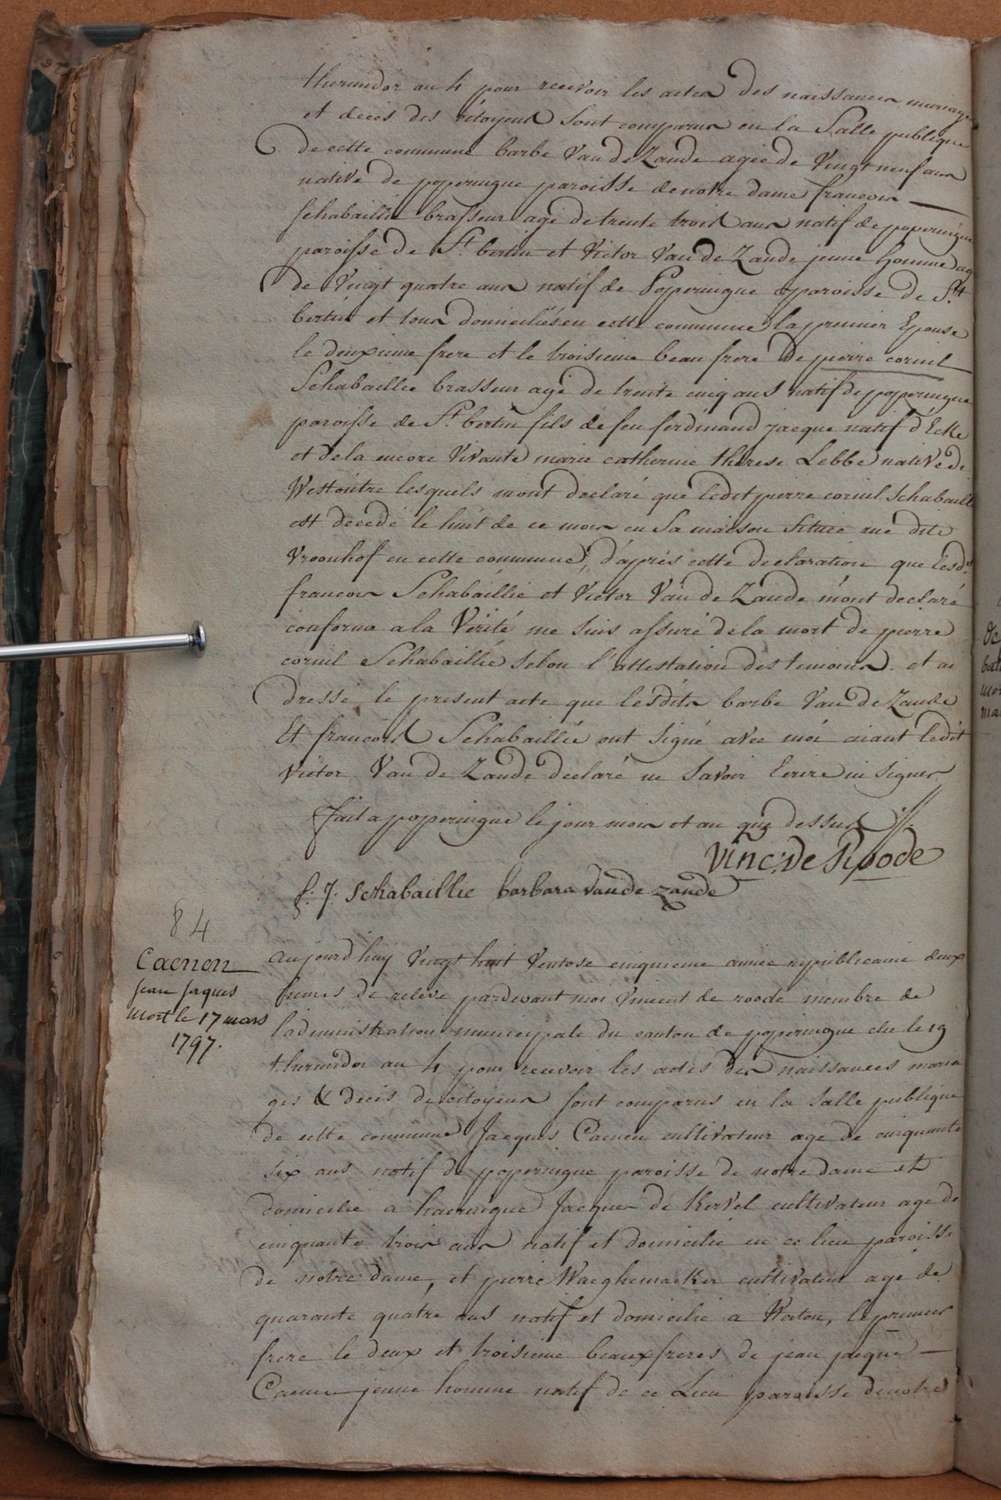 thermidor an 4 pour recevoir les actes des naissances mariage
et décès des citoyens sont comparus en la salle publique
de cette commune barbe Van de Zande agée de Vingt neuf ans
native de poperingue paroisse de notre dame francois
schabaillie brasseur agé de trente trois ans natif de poperingue
paroisse de St. bertin et Victor Van de Zande jeune homme ag
de Vingt quatre ans natif de Poperingue paroisse de St
bertin et tous domiciliés en cette commune la premier Epouse
le deuxieme frere et le troisieme beau frere de pierre cornil
Schabaillie brasseur agé de trente cinq ans natif de poperingue
paroisse de St. bertin fils de feu ferdinand jacque natif d'Ecke
et de la encore Vivante marie catherine thérese Lebbe native de
Westoutre lesquels m'ont declaré que ledit pierre cornil Schabaill
est décedé le huit de ce mois en sa maison située rue dite
Vroonhof en cette commune, d'après cette declaration que lesd.
francois Schabaillie et Victor Van de Zande m'ont declaré
conforme a la Vérité me suis assuré de la mort de pierre
cornil Schabaillie selon l'attestation des temoins et ai
dressé le present acte que lesdits barbe Van de Zande
Et francois Schabaillie ont signé avec moi aiant ledit
Victor Van de Zande declaré ne savoir Ecrire ni signer
fait a poperingue le jour mois et an que dessus
Vinc: de Roode
f: J. Schabaillie barbara Van de Zande
84
Caenen
jean jaques
mort le 17 mars
1797.
aujourd'huy Vingt huit Ventose cinquieme année republicaine deux
heures de relevé pardevant moi Vincent de roode membre de
l'administration municipale du canton de poperingue elu le 19
thermidor an 4 pour recevoir les actes des naissances maria
ges & décès de citoyens sont comparus en la salle publique
de cette commune Jacques Caenen cultivateur age de cinquante
six ans natif de poperingue paroisse de notre dame et
domicilié a haeringue Jacques de Kervel cultivateur age de
cinquante trois ans natif et domicilié en ce lieu paroisse
de notre dame, et pierre Waeghemacker cultivateur age de
quarante quatre ans natif et domicilié a Watou, le premier
frere le deux et troisieme beaux freres de jean jacque
Caenen jeune homme natif de ce Lieu paroisse de notre